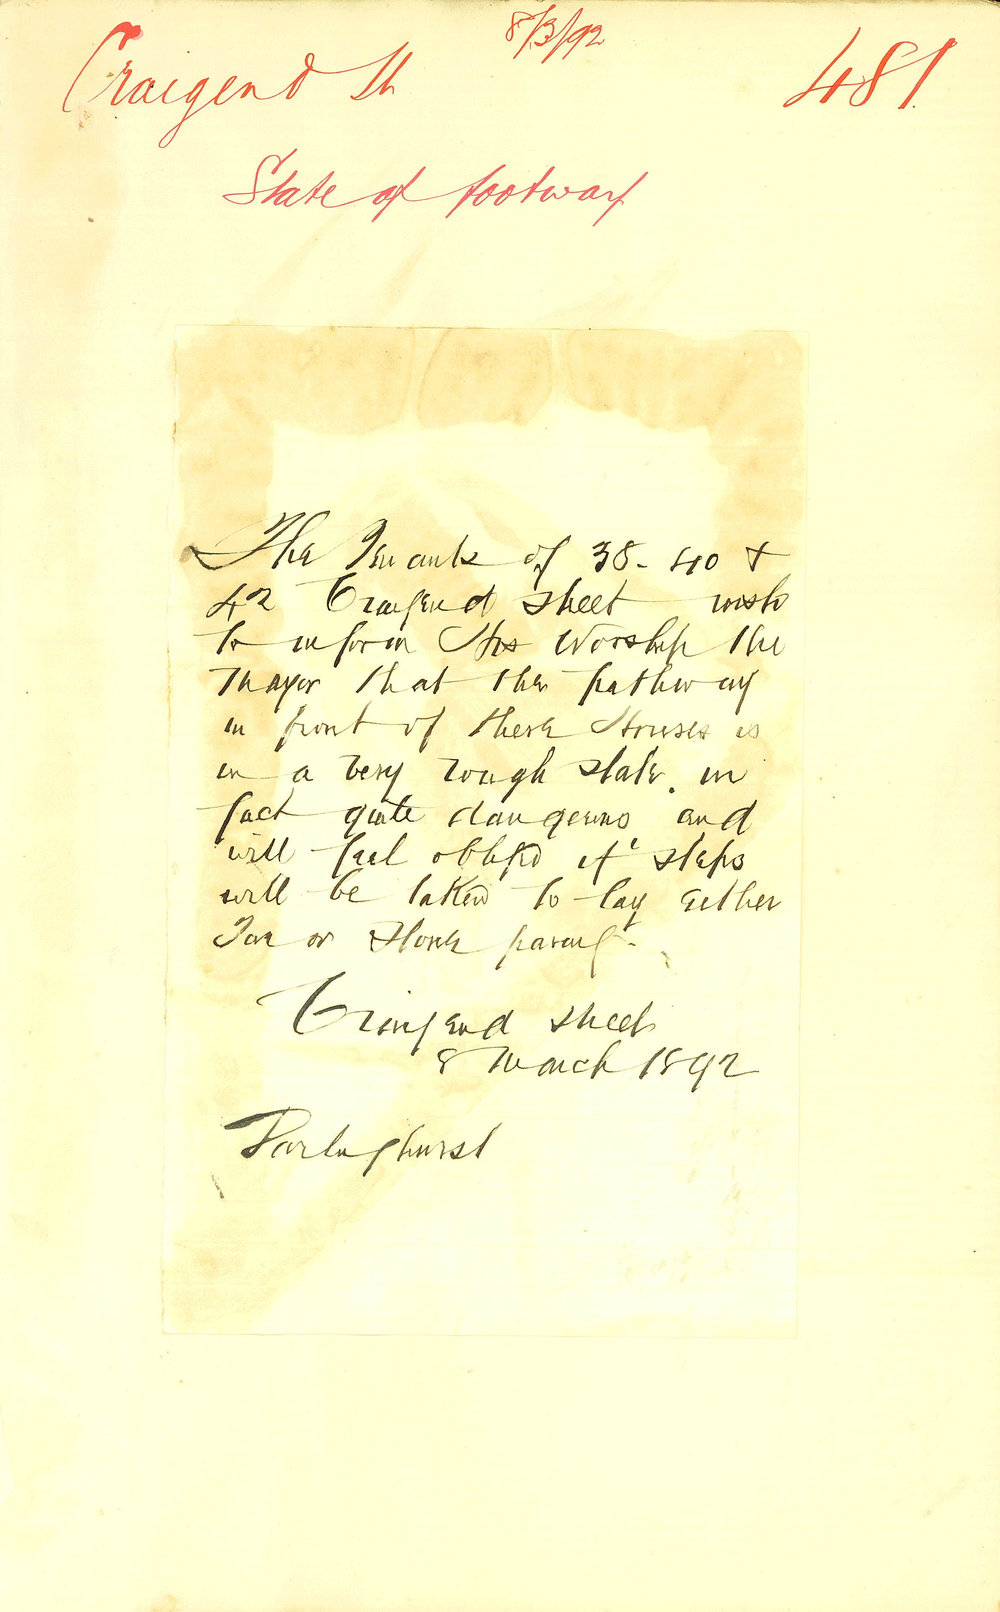 8/3/92
Craigend St
481
State of footway
The Tenants of 38-40 &
42 Craigend Street wish
to inform His Worship the
Mayor that the pathway
in front of these Houses is
in a very rough state. in
fact quite dangerous and
will feel obliged if steps
will be taken to lay either
Tar or Stone paving.
Craigend Street
8 March 1892
Darlinghurst